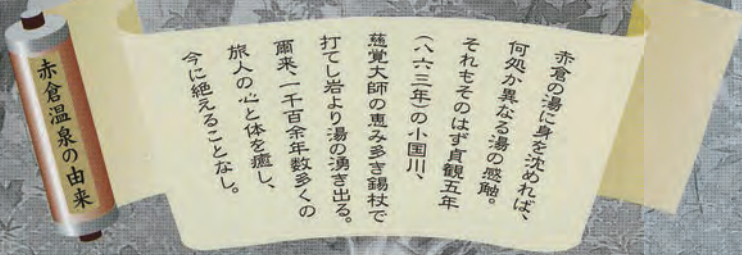 赤倉温泉の由来
赤倉の湯に身を沈めれば、
何処か異なる湯の感触。
それもそのはず貞観五年
(八六三年)の小国川、
慈覚大師の恵み多き錫杖で
打てし岩より湯の湧き出る。
爾来、一千百余年数多くの
旅人の心と体を癒し、
今に絶えることなし。